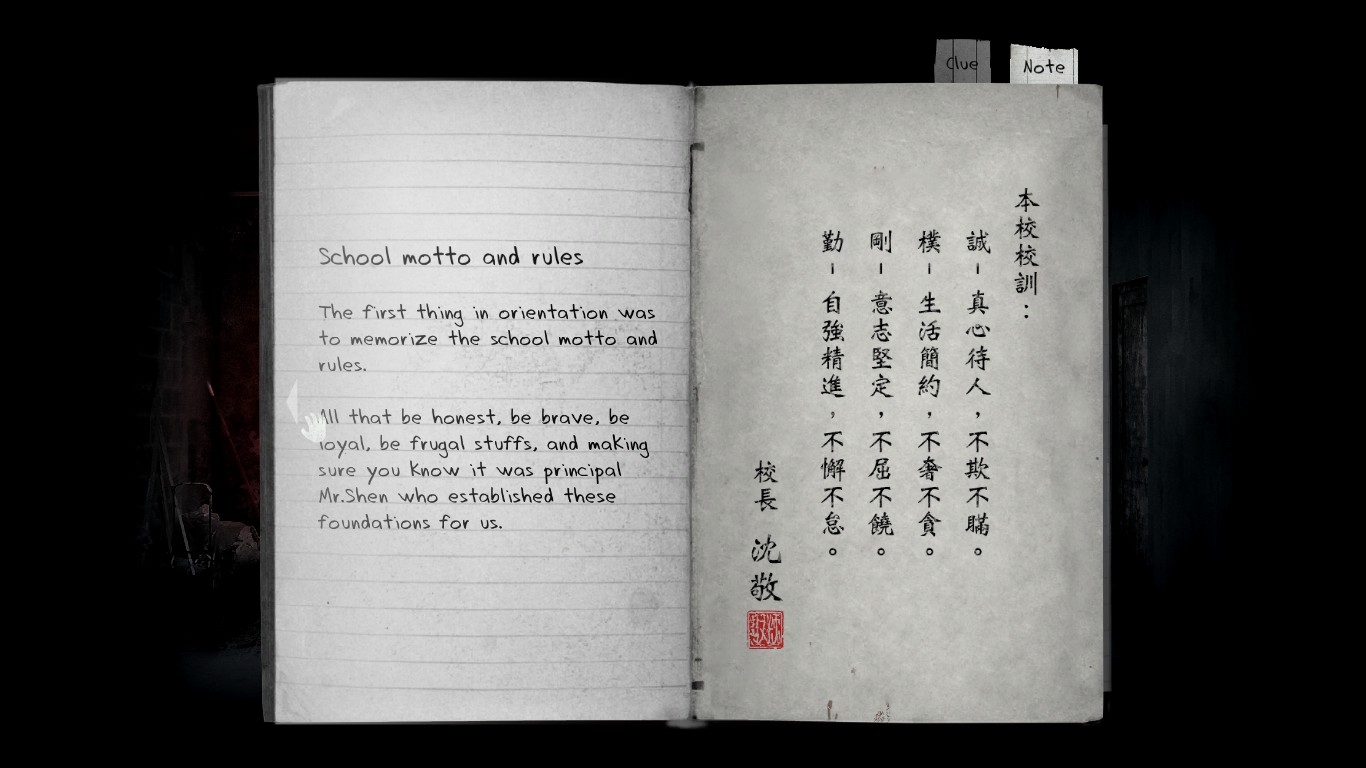 Clue
Note
School motto and rules
The first thing in orientation was
to memorize the school motto and
rules.
All that be honest, be brave, be
loyal, be frugal stuffs, and making
sure you know it was principal
Mr.Shen who established these
foundations for us.
本校校訓：
誠－真心待人，不欺不瞞。
樸－生活簡約，不奢不貪。
剛－意志堅定，不屈不饒。
勤－自強精進，不懈不怠。
校長 沈敬